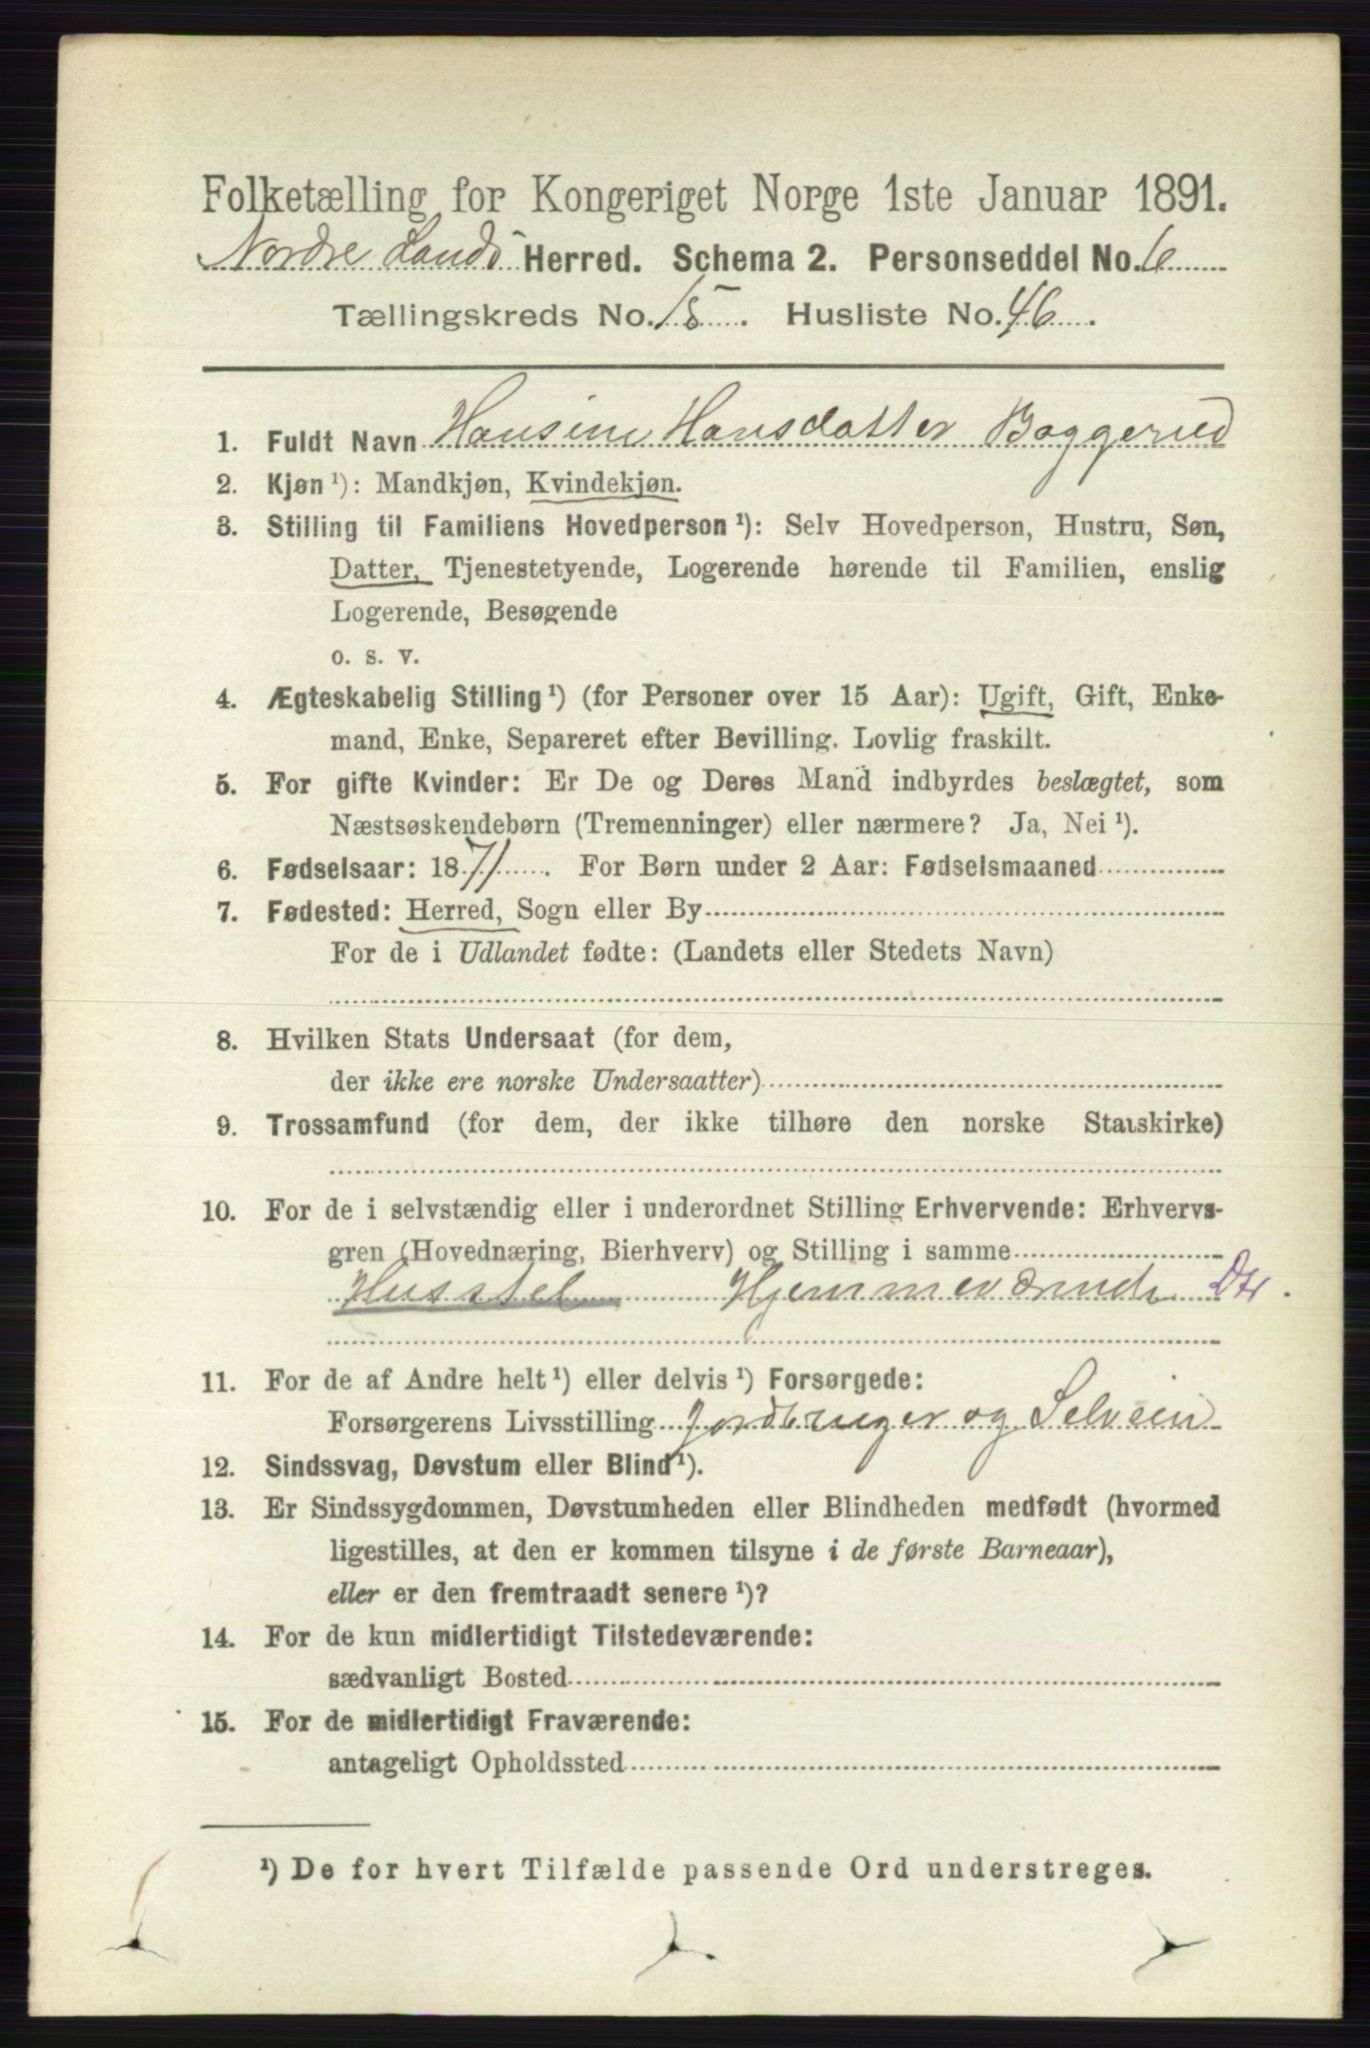 Folketælling for Kongeriget Norge 1ste Januar 1891.
Nordre Lands Herred. Schema 2. Personseddel No. 6
Tællingskreds No. 15. Husliste No. 46.
1. Fuldt Navn Hansine Hansdatter Baggerud
2. Kjøn ¹): Mandkjøn, Kvindekjøn.
3. Stilling til Familiens Hovedperson ¹): Selv Hovedperson, Hustru, Søn,
Datter, Tjenestetyende, Logerende hørende til Familien, enslig
Logerende, Besøgende
o. s. v.
4. Ægteskabelig Stilling ¹) (for Personer over 15 Aar): Ugift, Gift, Enke-
mand, Enke, Separeret efter Bevilling. Lovlig fraskilt.
5. For gifte Kvinder: Er De og Deres Mand indbyrdes beslægtet, som
Næstsøskendebørn (Tremenninger) eller nærmere? Ja, Nei ¹).
6. Fødselsaar: 1871. For Børn under 2 Aar: Fødselsmaaned
7. Fødested: Herred, Sogn eller By
For de i Udlandet fødte: (Landets eller Stedets Navn)
8. Hvilken Stats Undersaat (for dem,
der ikke ere norske Undersaatter)
9. Trossamfund (for dem, der ikke tilhøre den norske Statskirke)
10. For de i selvstændig eller i underordnet Stilling Erhvervende: Erhvervs-
gren (Hovednæring, Bierhverv) og Stilling i samme
Husstel Hjemmeværende Dtr.
11. For de af Andre helt ¹) eller delvis ¹) Forsørgede:
Forsørgerens Livsstilling Jordbruger og Selveier
12. Sindssvag, Døvstum eller Blind ¹).
13. Er Sindssygdommen, Døvstumheden eller Blindheden medfødt (hvormed
ligestilles, at den er kommen tilsyne i de første Barneaar),
eller er den fremtraadt senere ¹)?
14. For de kun midlertidigt Tilstedeværende:
sædvanligt Bosted
15. For de midlertidigt Fraværende:
antageligt Opholdssted
¹) De for hvert Tilfælde passende Ord understreges.